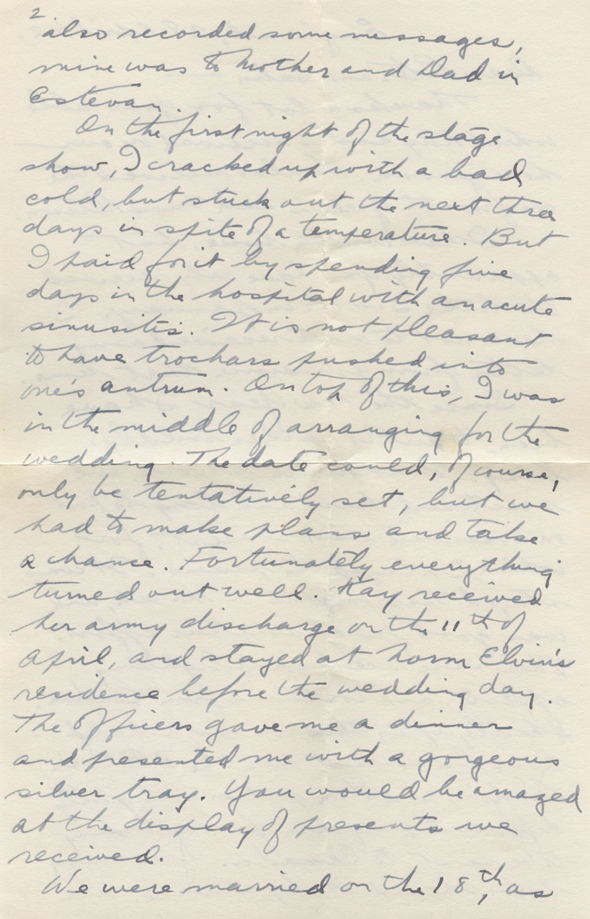 2
also recorded some messages,
mine was to Mother and Dad in
Estevan.
On the first night of the stage
show, I cracked up with a bad
cold, but stuck out the next three
days in spite of a temperature. But
I paid for it by spending five
days in the hospital with an acute
sinusitis. It is not pleasant
to have trochars pushed into
one's antrum. On top of this, I was
in the middle of arranging for the
wedding. The date could, of course,
only be tentatively set, but we
had to make plans and take
a chance. Fortunately everything
turned out well. Kay received
her army discharge on the 11th of
April, and stayed at Norm Elvin's
residence before the wedding day.
The Officers gave me a dinner
and presented me with a gorgeous
silver tray. You would be amazed
at the display of presents we
received.
We were married on the 18th, as